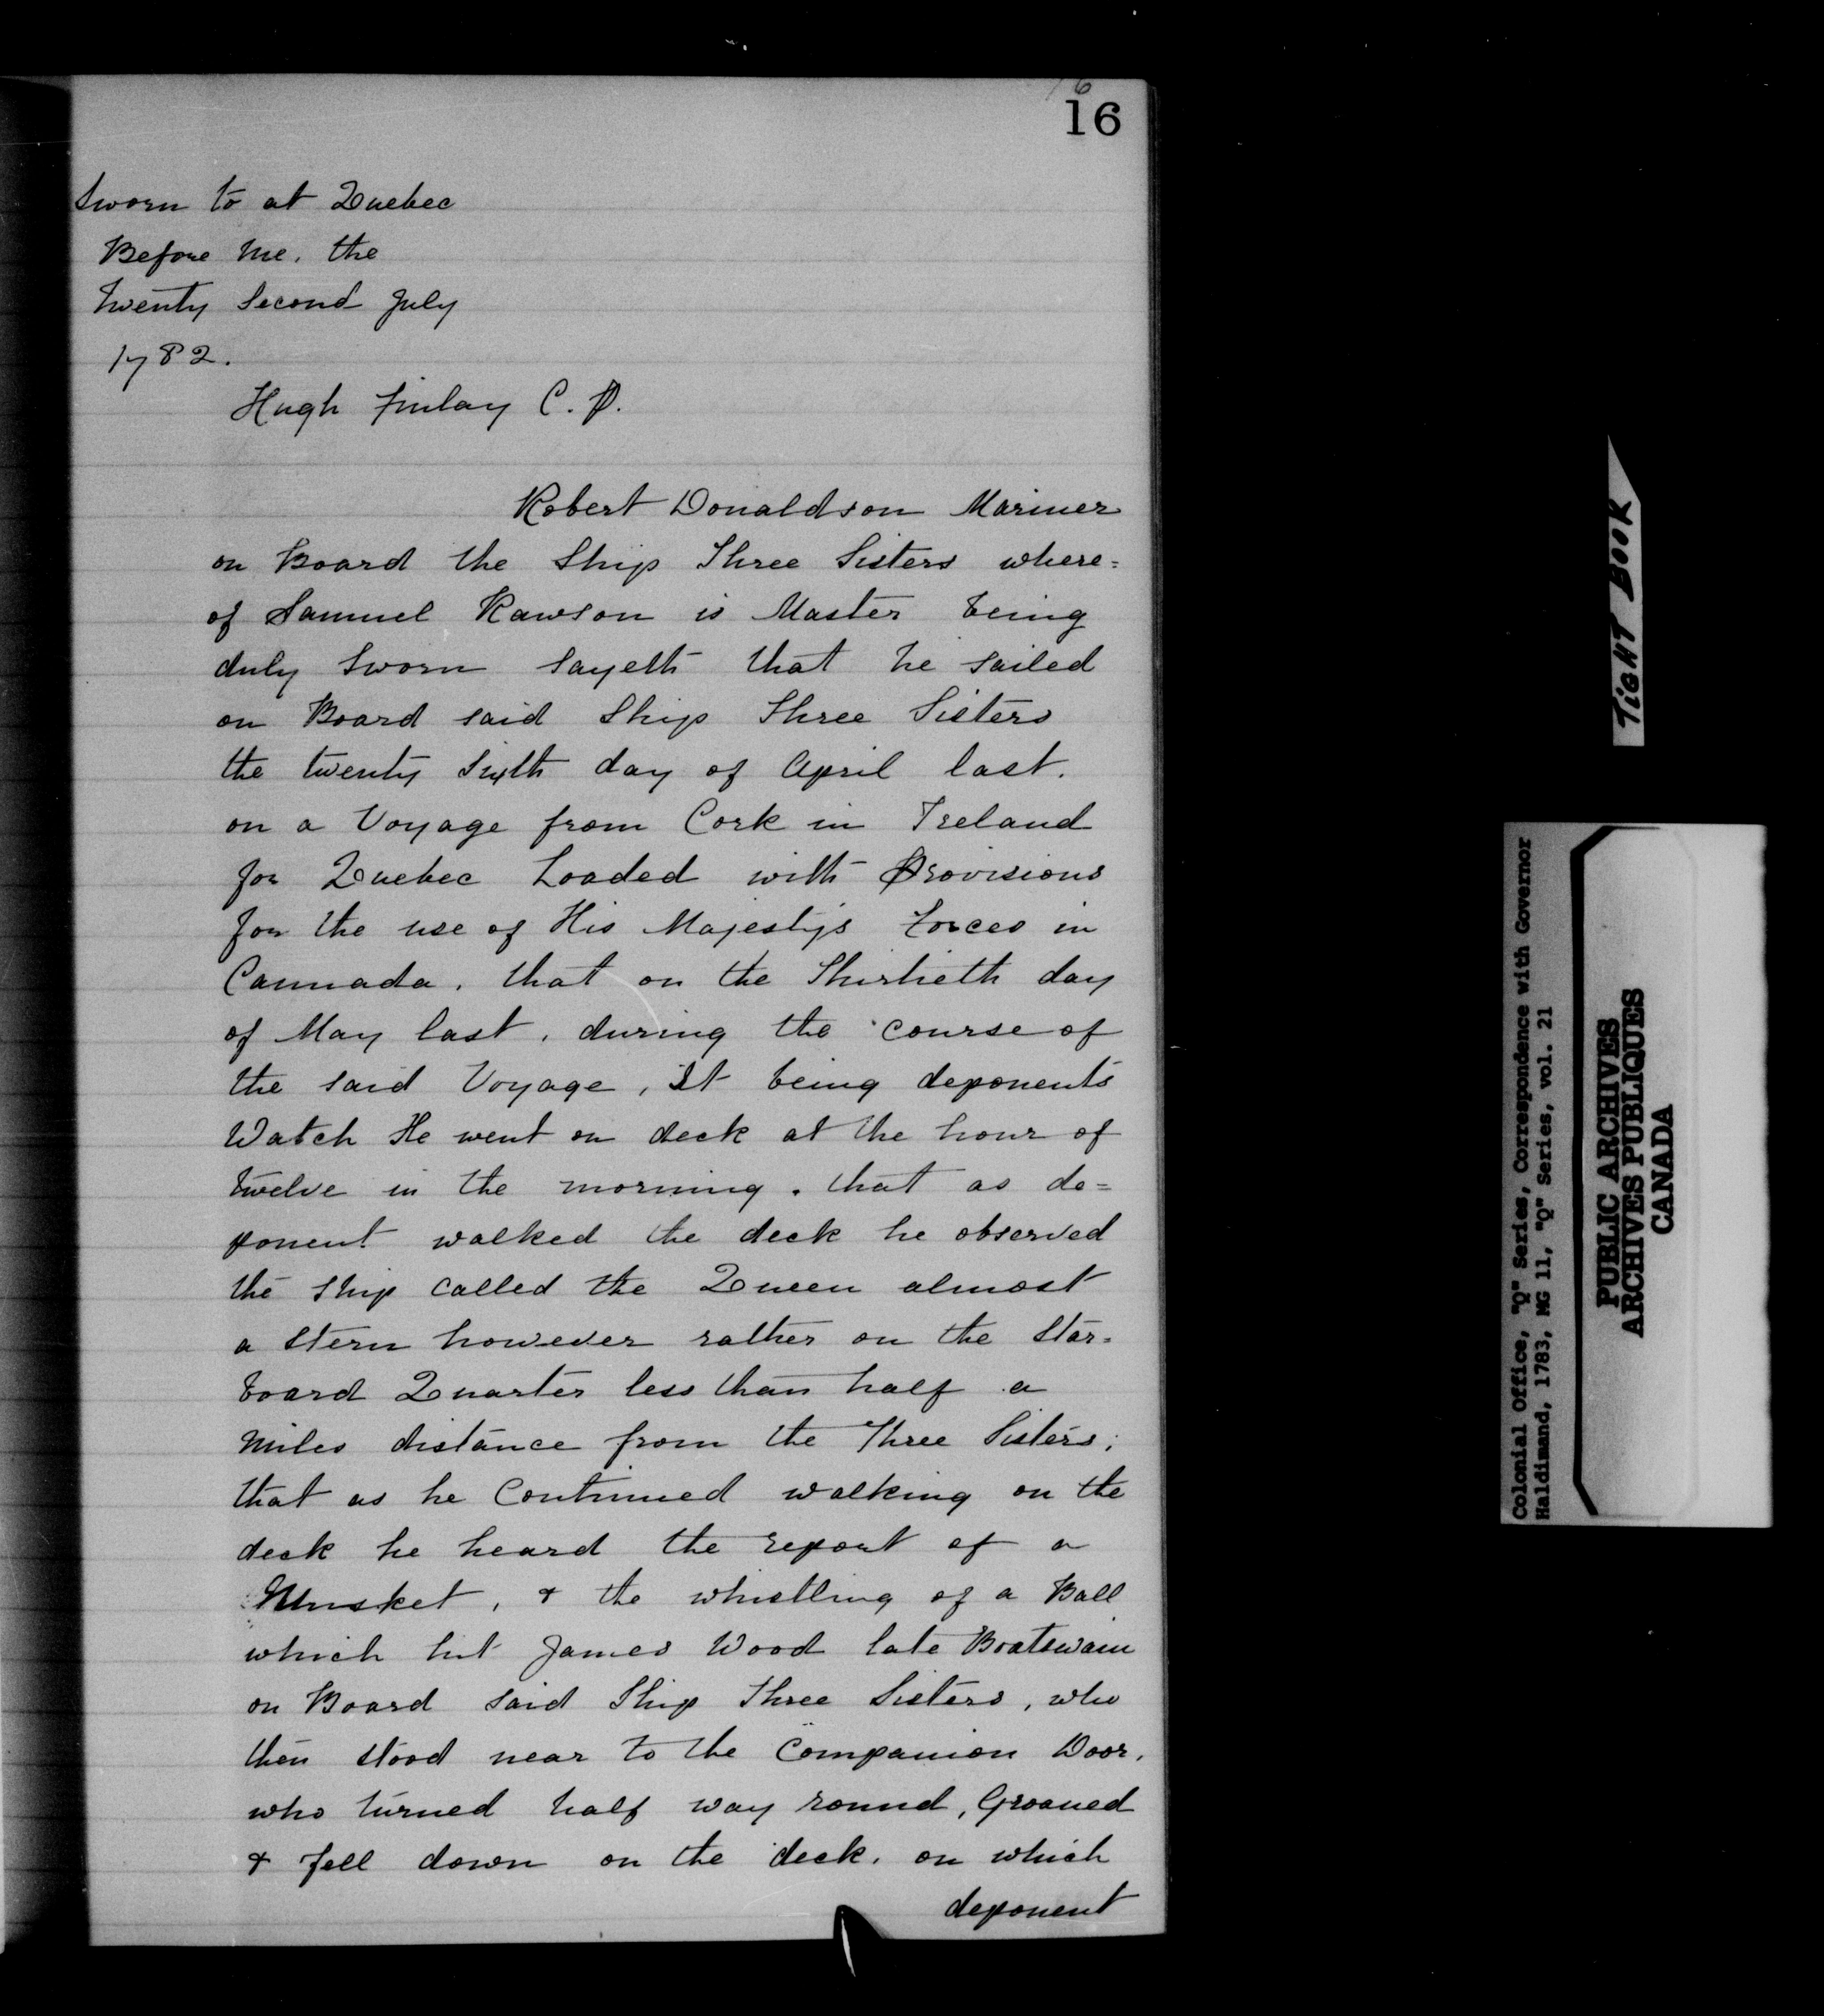 16
16
Sworn to at Quebec
Before me, the
twenty Second July
1782.
Hugh Finlay C. P.
Robert Donaldson Mariner
on Board the Ship Three Sisters where=
of Samuel Rawson is Master being
duly Sworn Sayeth that he sailed
on Board said Ship Three Sisters
the twenty Sixth day of April last.
on a Voyage from Cork in Ireland
for Quebec Loaded with Provisions
for the use of His Majesty's Forces in
Cannada, that on the Thirtieth day
of May last, during the course of
the said Voyage, It being deponents
Watch He went on deck at the hour of
twelve in the morning. that as de=
ponent walked the deck he observed
the Ship called the Queen almost
a Stern however rather on the Star=
board Quarter less than half a
Miles distance from the Three Sisters;
that as he Continued walking on the
deck he heard the report of a
Musket, & the whistling of a Ball
which hit James Wood late Boatswain
on Board said Ship Three Sisters, who
then stood near to the Companion Door,
who turned half way round, Groaned
& fell down on the deck. on which
deponent
TIGHT BOOK
Colonial Office, "Q" Series, Correspondence with Governor
Haldimand, 1783, MG 11, "Q" Series, vol. 21
PUBLIC ARCHIVES
ARCHIVES PUBLIQUES
CANADA